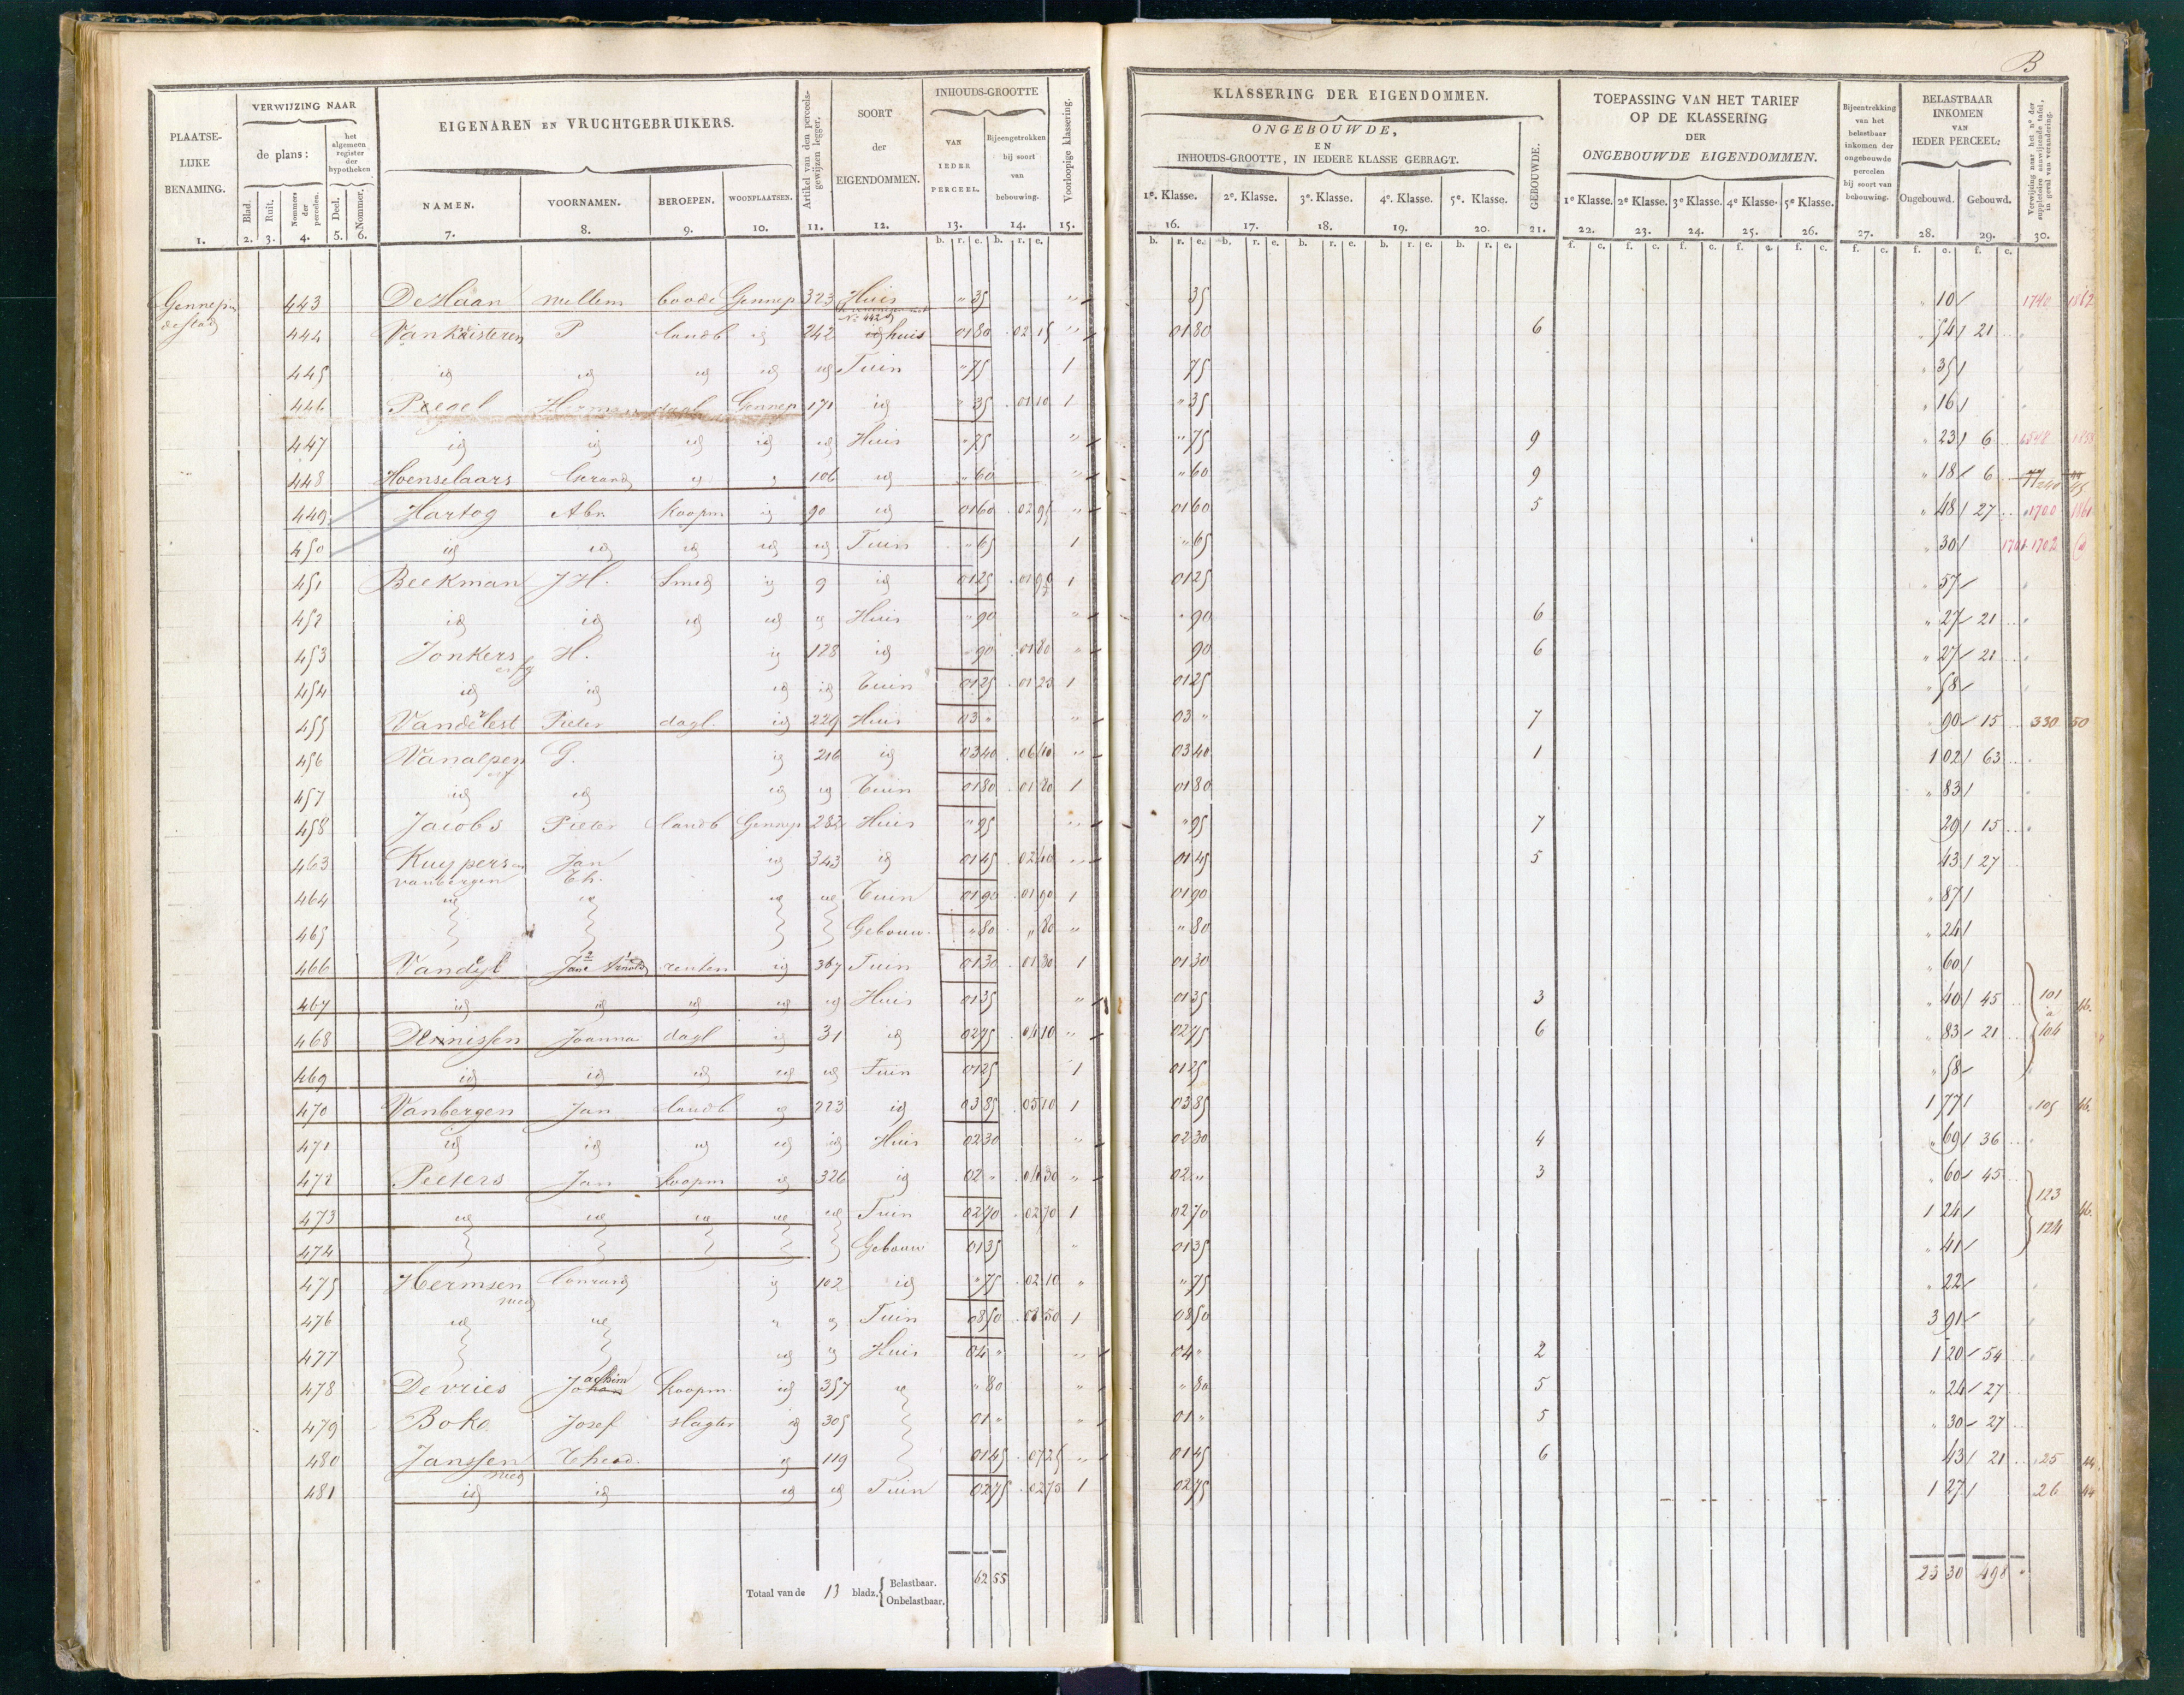 B
PLAATSELIJKE BENAMING. 1.
VERWIJZING NAAR
de plans: Blad. 2. Ruit. 3. Nommers der perceelen. 4.
het algemeen register der hypotheken Deel. 5. Nommer. 6.
EIGENAREN EN VRUCHTGEBRUIKERS.
NAMEN. 7. VOORNAMEN. 8. BEROEPEN. 9. WOONPLAATSEN. 10.
Artikel van den perceelsgewijzen legger. 11.
SOORT der EIGENDOMMEN. 12.
INHOUDS-GROOTTE
VAN IEDER PERCEEL. 13. Bijeengetrokken bij soort van bebouwing. 14.
Voorloopige klassering. 15.
KLASSERING DER EIGENDOMMEN.
ONGEBOUWDE, EN INHOUDS-GROOTTE, IN IEDERE KLASSE GEBRAGT.
1e. Klasse. 16. 2e. Klasse. 17. 3e. Klasse. 18. 4e. Klasse. 19. 5e. Klasse. 20. GEBOUWDE. 21.
TOEPASSING VAN HET TARIEF OP DE KLASSERING DER ONGEBOUWDE EIGENDOMMEN.
1e Klasse. 22. 2e Klasse. 23. 3e Klasse. 24. 4e Klasse. 25. 5e Klasse. 26.
Bijeentrekking van het belastbaar inkomen der ongebouwde percelen bij soort van bebouwing. 27.
BELASTBAAR INKOMEN VAN IEDER PERCEEL:
Ongebouwd. 28. Gebouwd. 29.
Verwijzing naar het no. der suppletoire aanwijzende tafel, in geval van verandering. 30.
Gennep in de stad
443 De Haan Willem boode Gennep 323 Huis " 35 " 35 " 10 1740 1862
No 442
444 Van Kuisteren P landb id 242 id huis 01 80 02 15 " 01 80 6 " 54 21
445 id id id id id Tuin " 75 1 75 " 35
446 Pegel Gennep 171 id " 35 01 10 1 " 35 " 16
447 id id id id id Huis " 75 " " 75 9 " 23 6 1858
448 Hoenselaars Gerard id 106 id " 60 " " 60 9 " 18 6
449 Hartog Abr Koopm id 90 id 01 60 02 95 " 01 60 5 " 48 27 1700 1861
450 id id id id id Tuin " 65 1 " 65 " 30 1701 1702
451 Beekman J H. Smid id 9 id 01 25 01 90 1 01 25 " 57
452 id id id id id Huis " 90 " " 90 6 " 27 21
453 Jonkers erfg H. id 128 id " 90 01 80 " 90 6 " 27 21
454 id id id id Tuin 01 25 01 23 1 01 25 " 58
455 Van de Lest Pieter dagl. id 229 Huis 03 " " 03 " 7 90 15 330 50
456 Van alpen erf G. id 216 id 03 40 06 40 " 03 40 1 1 02 63
457 id id id id Tuin 01 80 01 80 1 01 80 " 83
458 Jacobs Pieter landb Gennep 232 Huis " 95 " " 95 7 29 15
463 Kuypers en vanbergen Jan Th. id 343 id 01 45 02 40 " 01 45 5 43 27
464 id id id id Tuin 01 90 01 90 1 01 90 " 87
465 Gebouw " 80 " 80 " " 80 " 24
466 Vandyk Jan Arnold renten id 367 Tuin 01 30 01 30 1 01 30 " 60
467 id id id id id Huis 01 35 " 01 35 3 " 40 45 101 a 104 46.
468 Joanna dagl id 31 id 02 75 04 10 " 02 75 6 " 83 21
469 id id id id id Tuin 01 25 1 01 25 " 58
470 Vanbergen Jan landb id 223 id 03 85 05 10 1 03 85 1 77 105 46.
471 id id id id id Huis 02 30 " 02 30 4 " 69 36
472 Peeters Jan Koopm id 326 id 02 " 04 30 " 02 " 3 " 60 45
473 id id id id id Tuin 02 70 02 70 1 02 70 1 24 123 124 46.
474 Gebouw 01 35 " 01 35 " 41
475 Hermsen wed Conrard id 102 id " 75 02 10 " " 75 " 22
476 id id " id Tuin 08 50 08 50 1 08 50 3 91
477 id id Huis 04 " " 04 " 2 1 20 54
478 De vries Johan achim Koopm. id 357 id " 80 " " 80 5 " 24 27
479 Boko Josef slagter id 305 01 " " 01 " 5 " 30 27
480 Janssen wed Theod. id 119 01 45 07 25 " 01 45 6 43 21 25 44.
481 id id id id Tuin 02 75 02 75 1 02 75 1 27 26 44
Totaal van de 13 bladz. { Belastbaar. 62 55 23 30 498 "
Onbelastbaar.